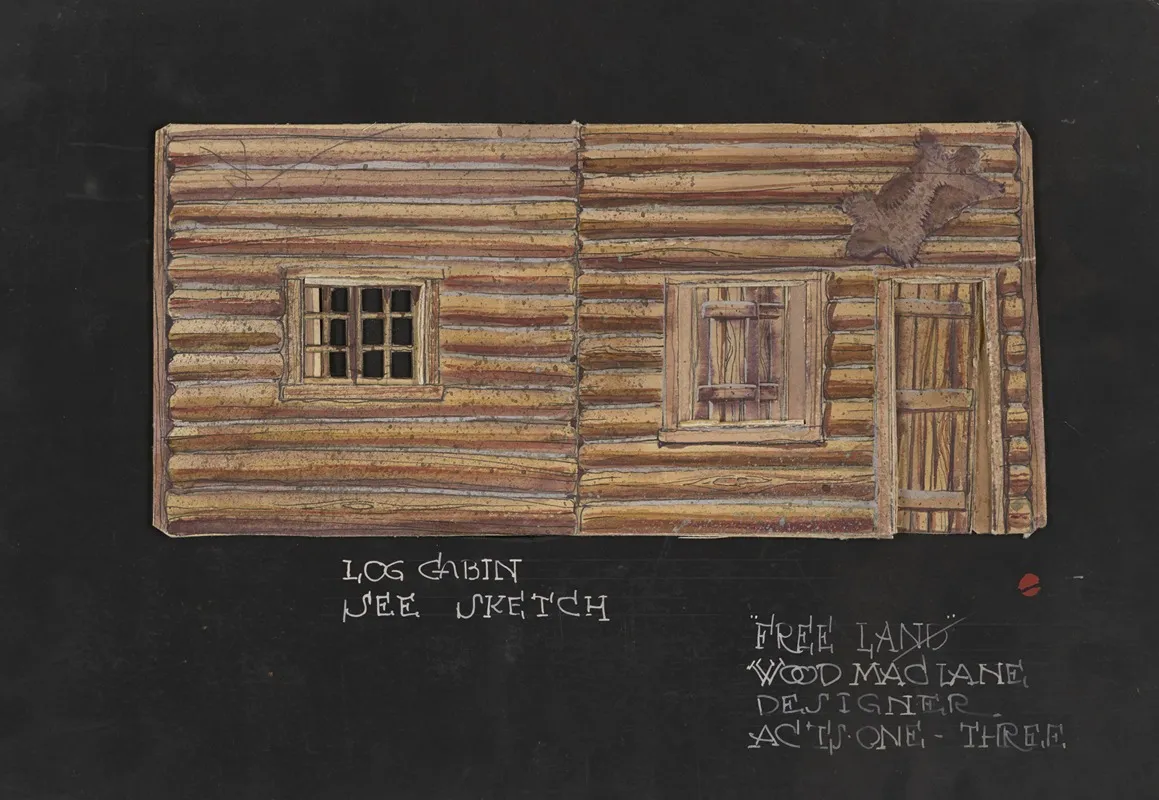 LOG CABIN
SEE SKETCH
"FREE LAND"
WOOD MACLANE
DESIGNER
ACTS·ONE - THREE